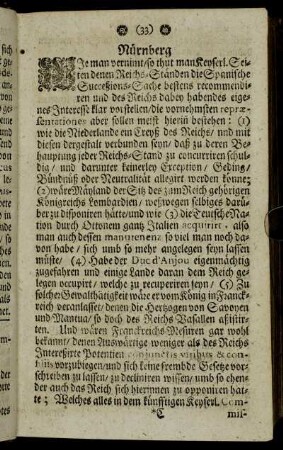 (33)
Nürnberg
WJe man vernimt/so thut man Keyserl. Sei-
ten denen Reichs-Ständen die Spanische
Successions-Sache bestens recommendi-
ren und des Reichs dabey habendes eige-
nes Interesse klar vorstellen/die vornehmsten repræ-
sentationes aber sollen meist hierin bestehen: (1)
wie die Niederlande ein Creyß des Reichs/ und mit
diesen dergestalt verbunden seyn/ daß zu deren Be-
hauptung jeder Reichs-Stand zu concurriren schul-
dig / und darunter keinerley Exception / Geding/
Bündnuß oder Neutralität allegirt werden könne;
(2) wäre Mäyland der Sitz des zum Reich gehörigen
Königreichs Lombardien / weßwegen selbiges darü-
ber zu disponiren hätte/und wie (3) die Teutsche Na-
tion durch Ottonem gantz Italien acquirirt, also
man auch dessen manuteneri so viel man noch da-
von habe / sich umb so mehr angelegen seyn lassen
müste/ (4) Habe der Duc d'Anjou eigenmächtig
zugefahren und einige Lande daran dem Reich ge-
legen occupirt/ welche zu recuperiren seyn / (5) Zu
solcher Gewaltthätigkeit wäre er vom König in Franck-
reich veranlasset/ denen die Hertzogen von Savoyen
und Mantua/ so doch des Reichs Vasallen assistir-
ten. Und wären Franckreichs Mesuren gar wohl
bekannt/ denen Auswärtige weniger als des Reichs
Interessirte Potentien conjunctis viribus & con-
siliis vorzubiegen/und sich keine frembde Gesetze vor-
schreiben zu lassen/ zu decliniren wissen/ umb so ehen-
der auch das Reich sich hierinnen zu opponiren hat-
te; Welches alles in dem künfftigen Keyserl. Com-
*C mis-